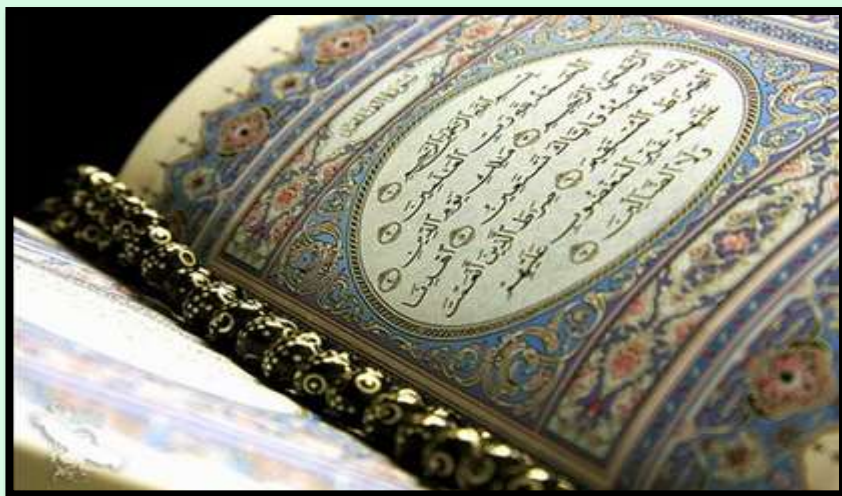 بسم الله الرحمن الرحيم
الحمد لله رب العلمين
الرحمن الرحيم ملك يوم الدين
إياك نعبد وإياك نستعين اهدنا
الصراط المستقيم صراط الذين أنعمت
عليهم غير المغضوب عليهم
ولا الضالين